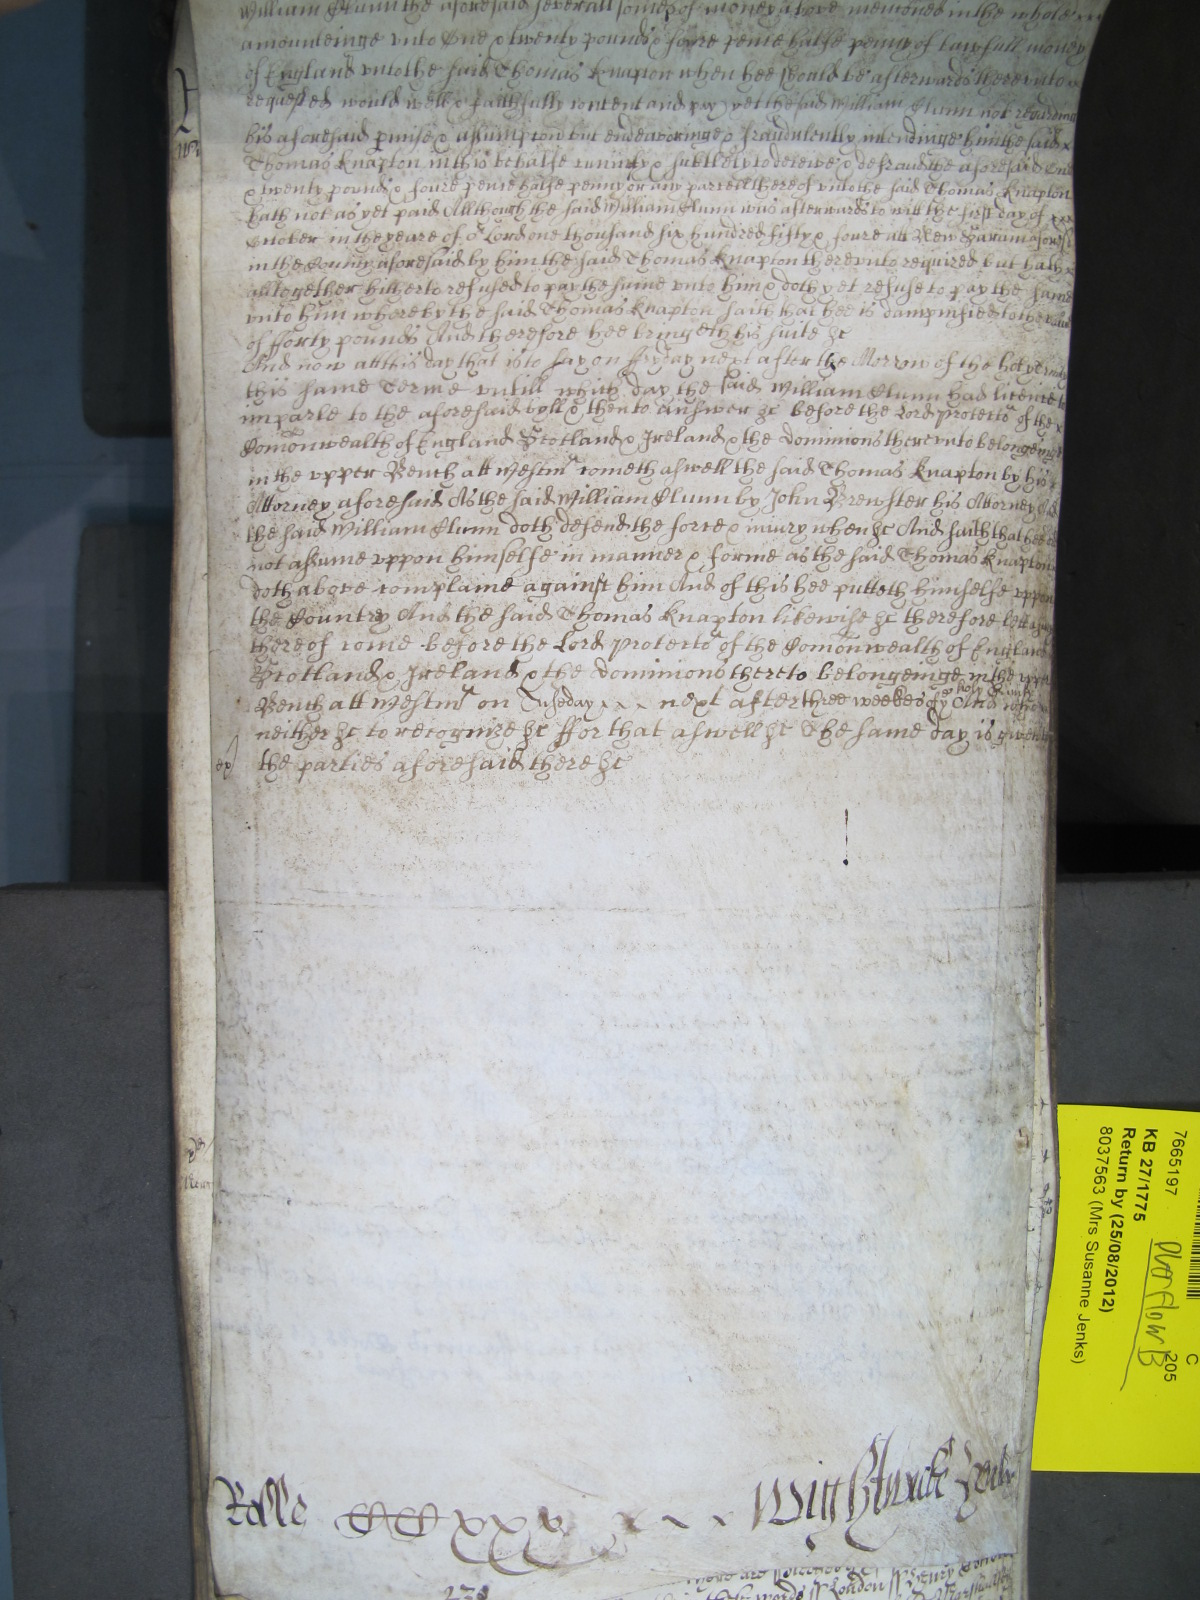 William Clunn the aforesaid severall somes of money above menconed in the whole
amounteinge unto One & twenty pounds & foure pence halfe penny of lawfull money
of England unto the said Thomas Knapton when hee should be afterwards thereunto
requested would well & faithfully content and pay) yet the said William Clunn not regarding
his aforesaid pmise & assumpton but endeavoringe & fraudulently intendinge him the said x
Thomas Knapton in this behalfe cuningly & subtlely to deceive & defraud the aforesaid One
& twenty pounds & foure pence halfe penny or any parcell thereof unto the said Thomas Knapton
hath not as yet paid Allthough the said William Clunn was afterwards to witt the first day of
October in the yeare of or Lord one thousand six hundred fifty & foure att New Sarum aforesd
in the County aforesaid by him the said Thomas Knapton thereunto required but hath x
altogether hitherto refused to pay the same unto him & doth yet refuse to pay the same
unto him whereby the said Thomas Knapton saith that hee is dampnified to the
of fforty pounds And therefore hee bringeth his suite &c
And now att this day that is to say on ffryday next after the Morrow of the
this same Terme untill which day the said William Clunn had licence to
imparle to the aforesaid byll & then to answer &c before the Lord Protector of the x
Comonwealth of England Scotland & Ireland & the dominions thereunto belongeinge
in the upper Bench att Westmr cometh aswell the said Thomas Knapton by his
Attorney aforesaid As the said William Clunn by John Brewster his Attorney And
the said William Clunn doth defend the force & injury when &c And saith that hee did
not assume uppon himselfe in manner & forme as the said Thomas Knapton
doth above complaine against him And of this hee putteth himselfe uppon
the Country And the said Thomas Knapton likewise &c therefore lett a jury
thereof come before the Lord Protector of the Comonwealth of England
Scotland & Ireland & the dominions thereto belongeinge in the upper
Bench att Westmr on Tuseday x x x next after three weekes of
neither &c to recognize &c ffor that aswell &c The same day is given to
the parties aforesaid there &c
Rolle CCxxx x x x Wightwick
238
There are
the words London Henry
7665197
KB 27/1775
Return by (25/08/2012)
8037563 (Mrs Susanne Jenks)
Overflow B
205
C